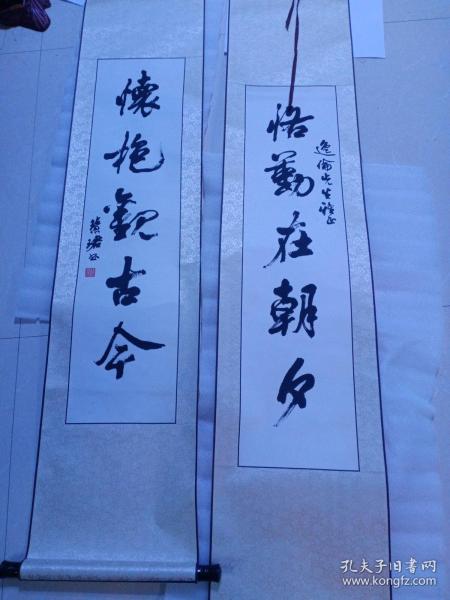 恪勤在朝夕
逸倫先生雅正
懷抱觀古今
孔夫子旧书网
www.kongfz.com